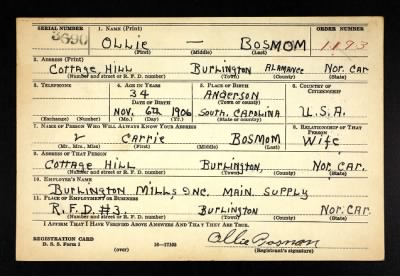 SERIAL NUMBER 1. NAME (Print) ORDER NUMBER
OLLIE — BOSMOM 1173
(First) (Middle) (Last)
2. ADDRESS (Print)
COTTAGE HILL BURLINGTON ALAMANCE NOR. CAR
(Number and street or R. F. D. number) (Town) (County) (State)
3. TELEPHONE 4. AGE IN YEARS 5. PLACE OF BIRTH 6. COUNTRY OF CITIZENSHIP
34 ANDERSON
DATE OF BIRTH (Town or county)
NOV. 6th 1906 SOUTH. CAROLINA U.S.A.
(Exchange) (Number) (Mo.) (Day) (Yr.) (State or country)
7. NAME OF PERSON WHO WILL ALWAYS KNOW YOUR ADDRESS 8. RELATIONSHIP OF THAT PERSON
CARRIE BOSMOM WIFE
(Mr., Mrs., Miss) (First) (Middle) (Last)
9. ADDRESS OF THAT PERSON
COTTAGE HILL BURLINGTON, NOR. CAR.
(Number and street or R. F. D. number) (Town) (County) (State)
10. EMPLOYER'S NAME
BURLINGTON MILLS INC. MAIN. SUPPLY
11. PLACE OF EMPLOYMENT OR BUSINESS
R.F.D. #3. BURLINGTON NOR. CAR
(Number and street or R. F. D. number) (Town) (County) (State)
I AFFIRM THAT I HAVE VERIFIED ABOVE ANSWERS AND THAT THEY ARE TRUE.
REGISTRATION CARD Ollie Bosmom
D. S. S. Form 1 (over) 16—17105 (Registrant's signature)